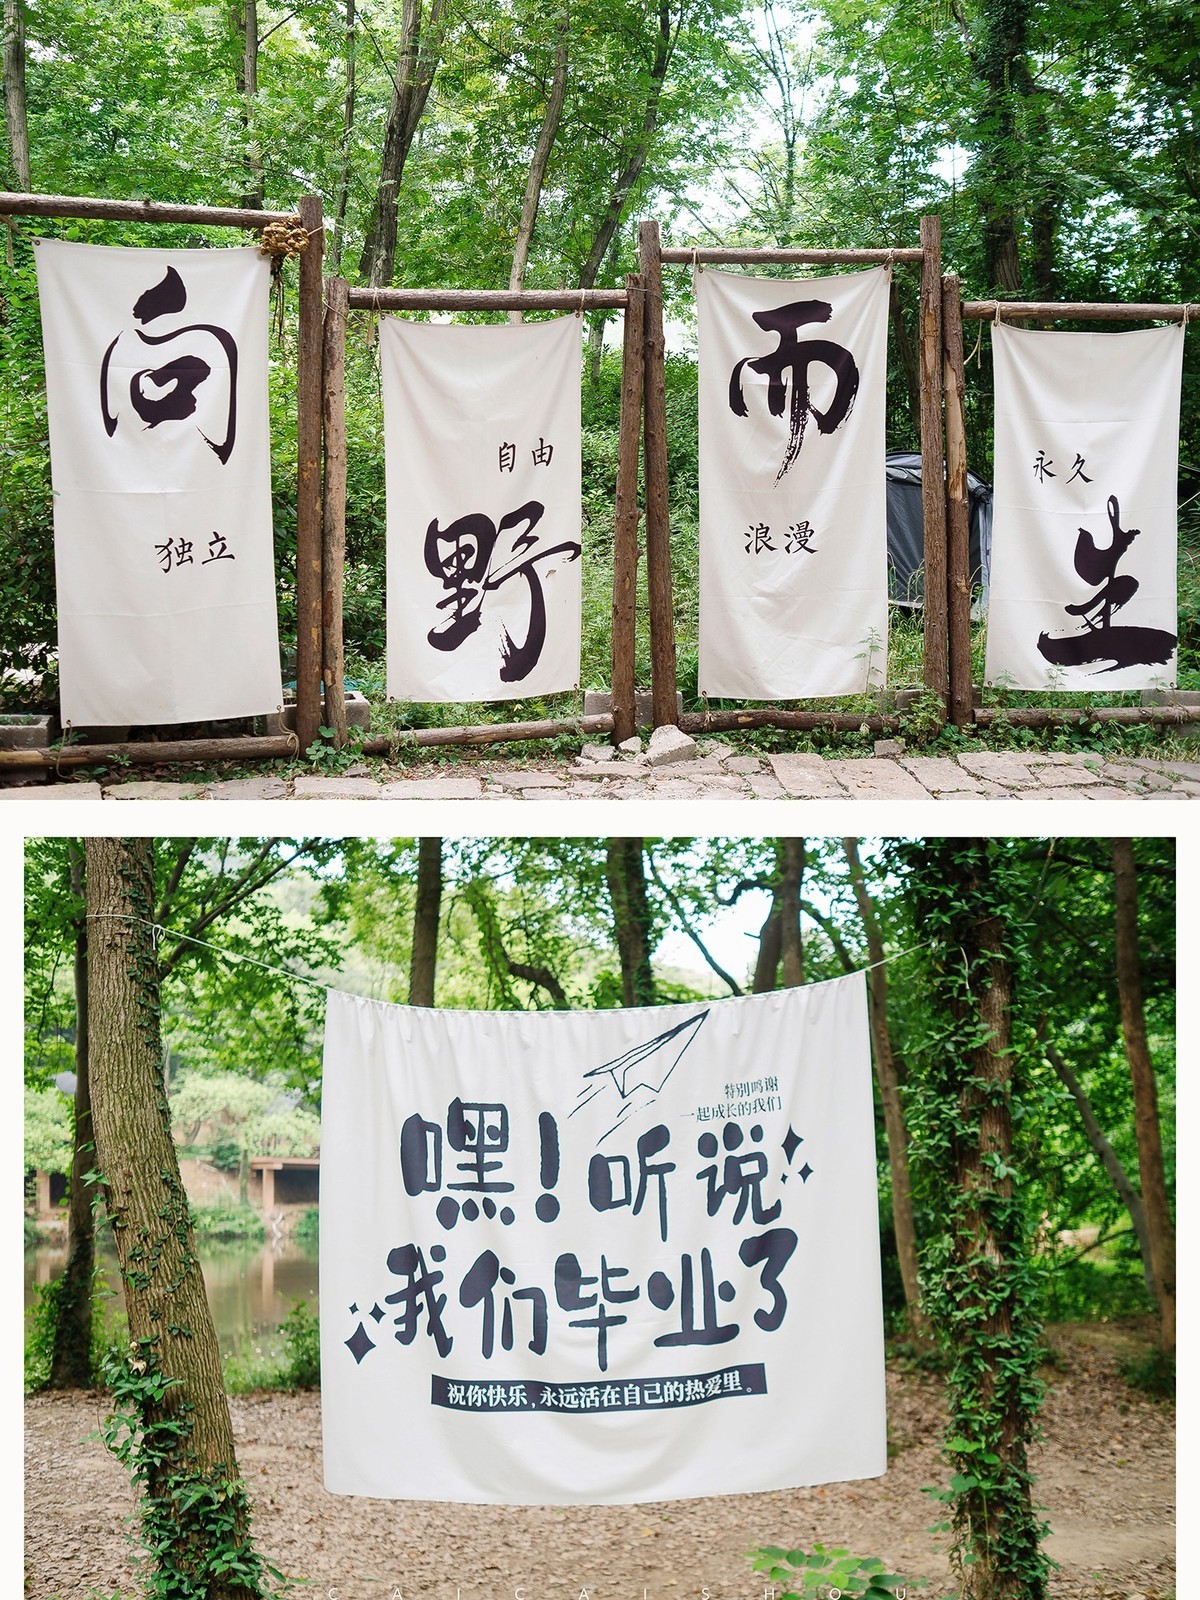 向
独立
自由
野
而
浪漫
永久
生
特别鸣谢
一起成长的我们
嘿!听说
我们毕业了
祝你快乐,永远活在自己的热爱里。
CAICAISHOU